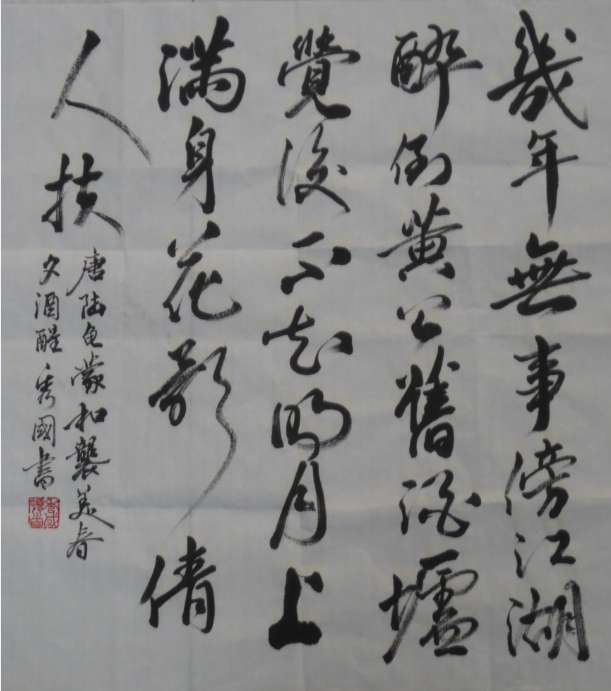 幾年無事傍江湖
醉倒黄公舊酒壚
覺後不知明月上
满身花影倩
人扶
唐陆龟蒙和襲美春
夕酒醒秀國書